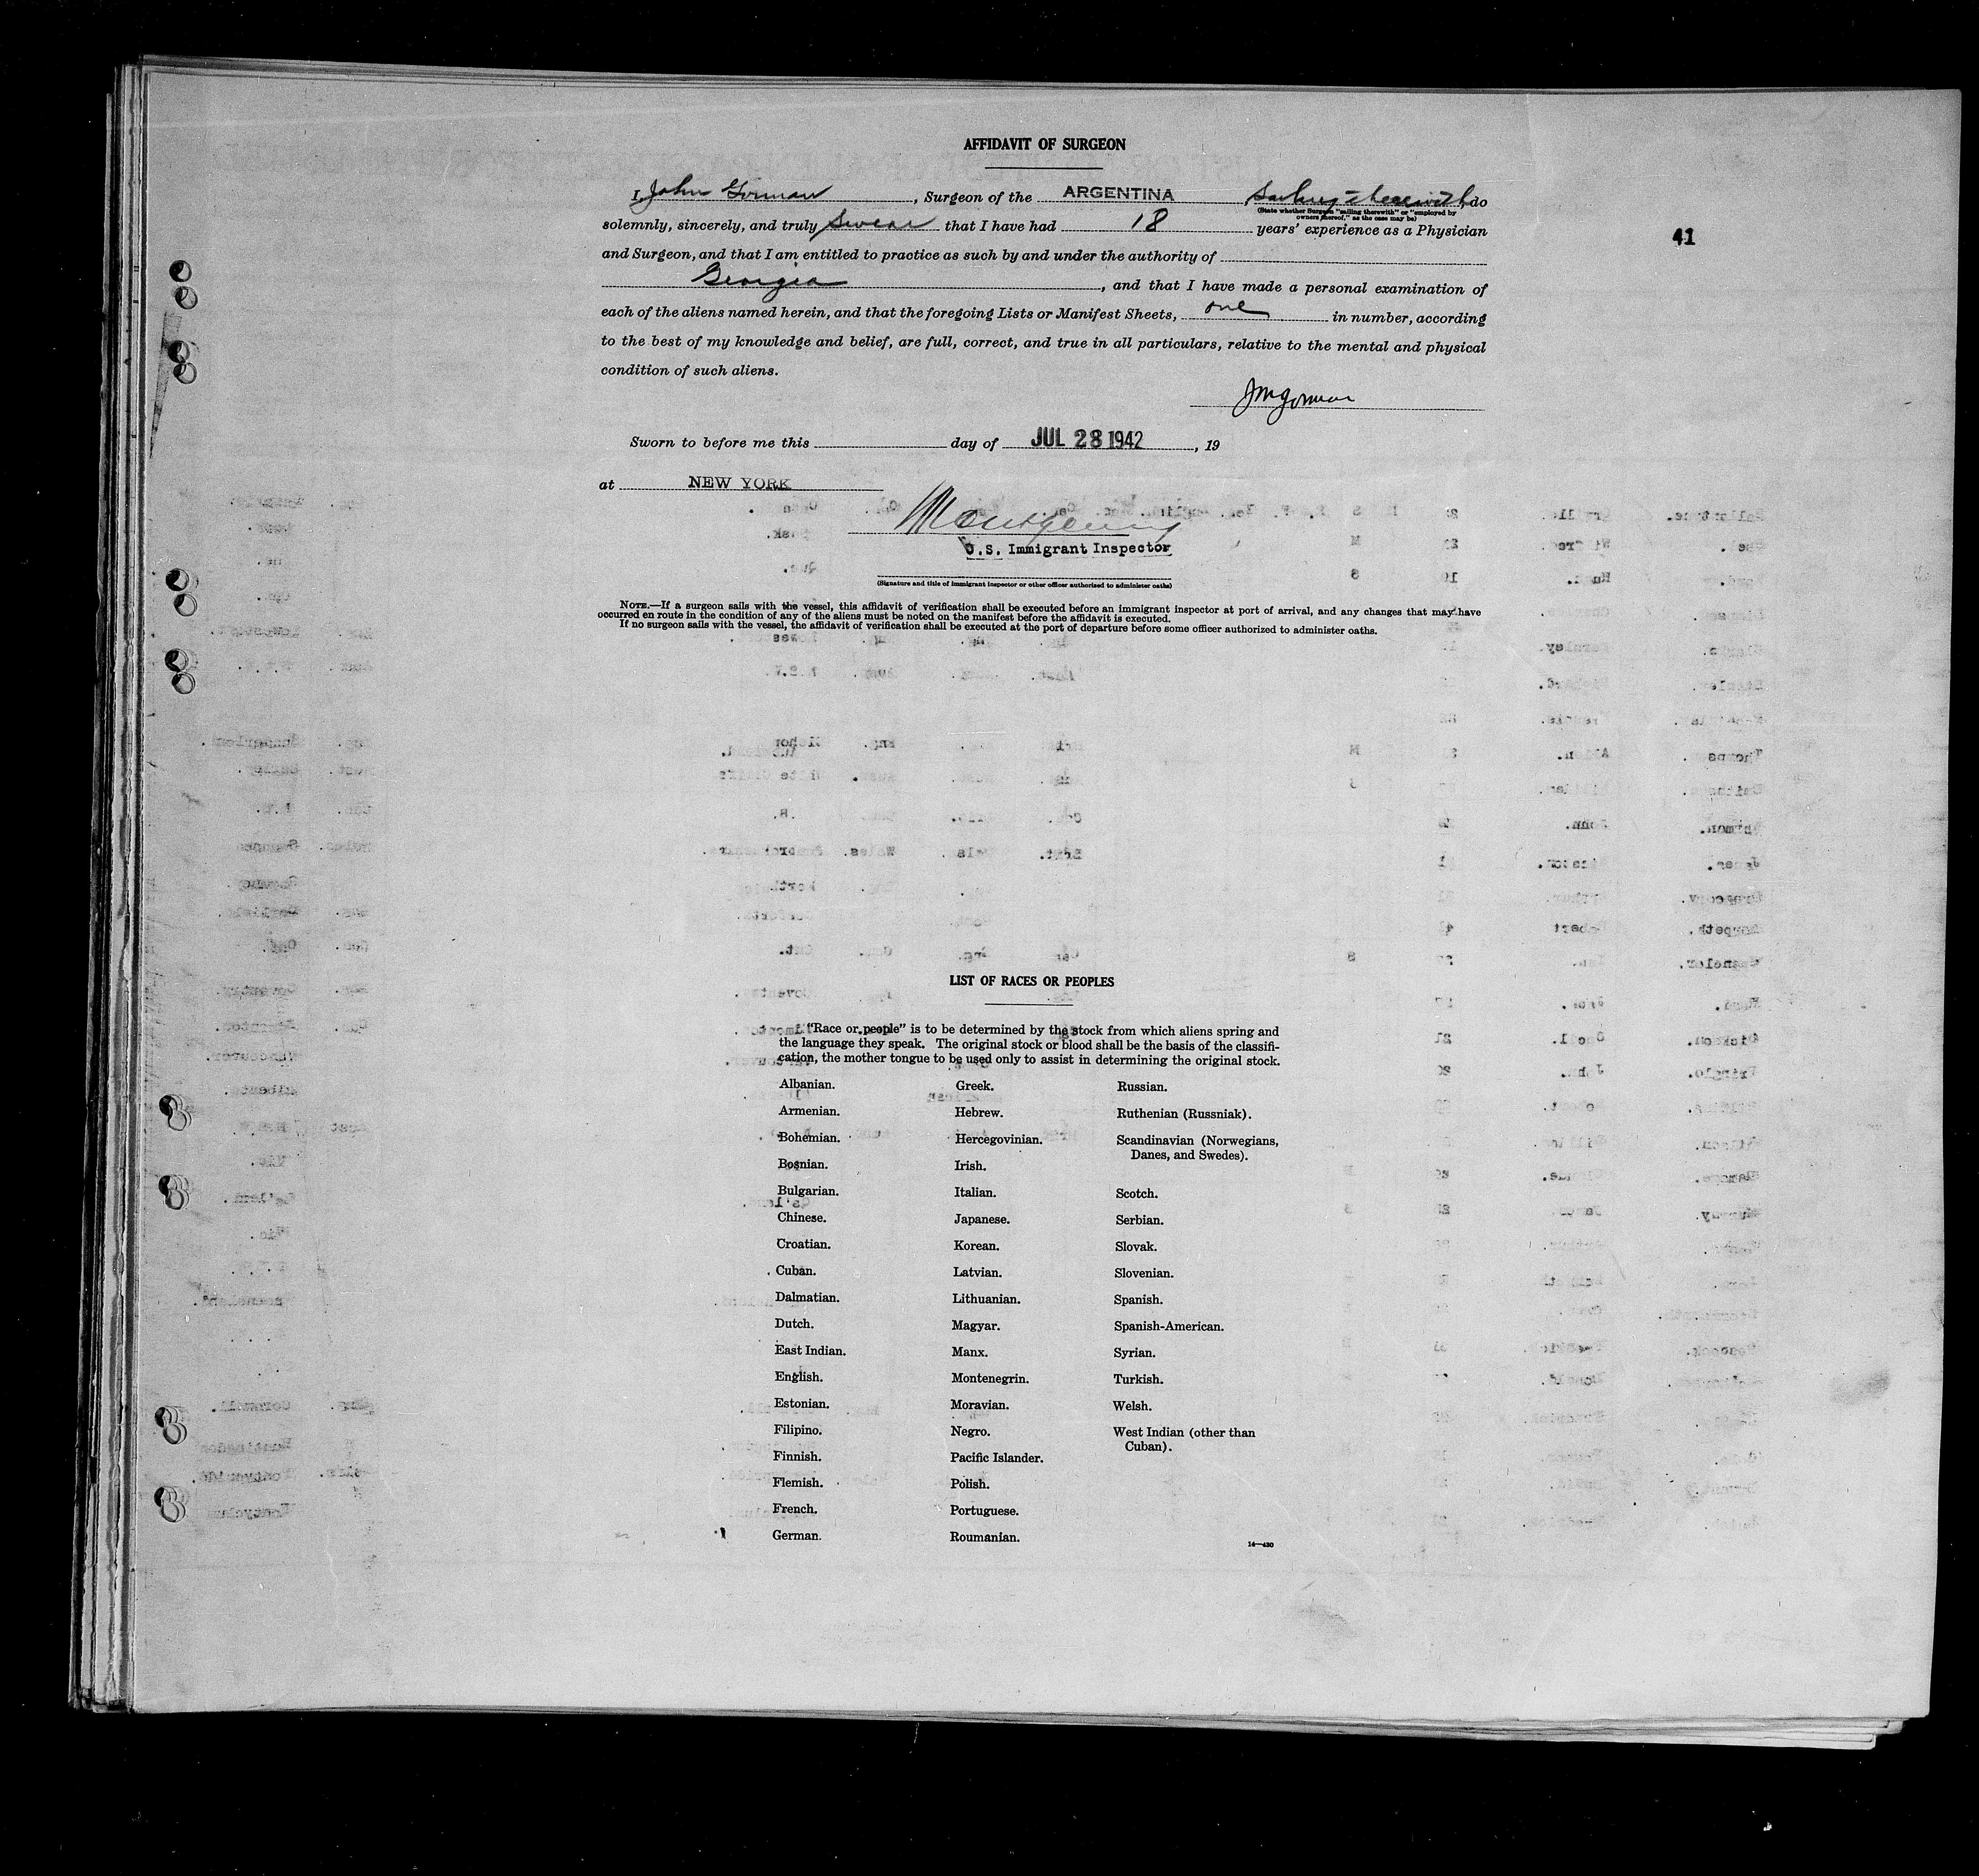 AFFIDAVIT OF SURGEON
I, John Gorman, Surgeon of the ARGENTINA sailing therewith, do
(State whether Surgeon "sailing therewith" or "employed by
owners thereof," as the case may be)
solemnly, sincerely, and truly swear that I have had 18 years' experience as a Physician
41
and Surgeon, and that I am entitled to practice as such by and under the authority of
Georgia, and that I have made a personal examination of
each of the aliens named herein, and that the foregoing Lists or Manifest Sheets, one in number, according
to the best of my knowledge and belief, are full, correct, and true in all particulars, relative to the mental and physical
condition of such aliens.
JMGorman
Sworn to before me this day of JUL 28 1942, 19
at NEW YORK
Montgomery
U.S. Immigrant Inspector
(Signature and title of immigrant inspector or other officer authorized to administer oaths)
NOTE.—If a surgeon sails with the vessel, this affidavit of verification shall be executed before an immigrant inspector at port of arrival, and any changes that may have
occurred en route in the condition of any of the aliens must be noted on the manifest before the affidavit is executed.
If no surgeon sails with the vessel, the affidavit of verification shall be executed at the port of departure before some officer authorized to administer oaths.
LIST OF RACES OR PEOPLES
"Race or people" is to be determined by the stock from which aliens spring and
the language they speak. The original stock or blood shall be the basis of the classifi-
cation, the mother tongue to be used only to assist in determining the original stock.
Albanian.
Armenian.
Bohemian.
Bosnian.
Bulgarian.
Chinese.
Croatian.
Cuban.
Dalmatian.
Dutch.
East Indian.
English.
Estonian.
Filipino.
Finnish.
Flemish.
French.
German.
Greek.
Hebrew.
Hercegovinian.
Irish.
Italian.
Japanese.
Korean.
Latvian.
Lithuanian.
Magyar.
Manx.
Montenegrin.
Moravian.
Negro.
Pacific Islander.
Polish.
Portuguese.
Roumanian.
Russian.
Ruthenian (Russniak).
Scandinavian (Norwegians,
Danes, and Swedes).
Scotch.
Serbian.
Slovak.
Slovenian.
Spanish.
Spanish-American.
Syrian.
Turkish.
Welsh.
West Indian (other than
Cuban).
14—430